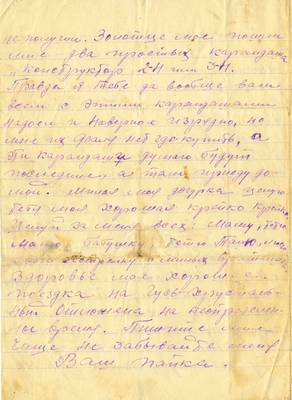 не получил. Золотце мое пошли
мне два простых карандаша
„Конструктор 2Н или 3Н.
Правда я тебе да вообще вам
всем с этими карандашами
надоел и наверное изрядно, но
мне их здесь негде купить, а
эти карандаши думаю будут
последние, а там приеду до-
мой. Милая моя дочурка целую
тебя моя хорошая крепко крепко
Целуй за меня всех: Маму, тетю
бабушку тетю Таню,
Здоровье мое хорошее.
поездка на Гусь-хрусталь-
ный отложена на неопределен-
ное время. Пишите мне
чаще не забывайте меня
Ваш папка.